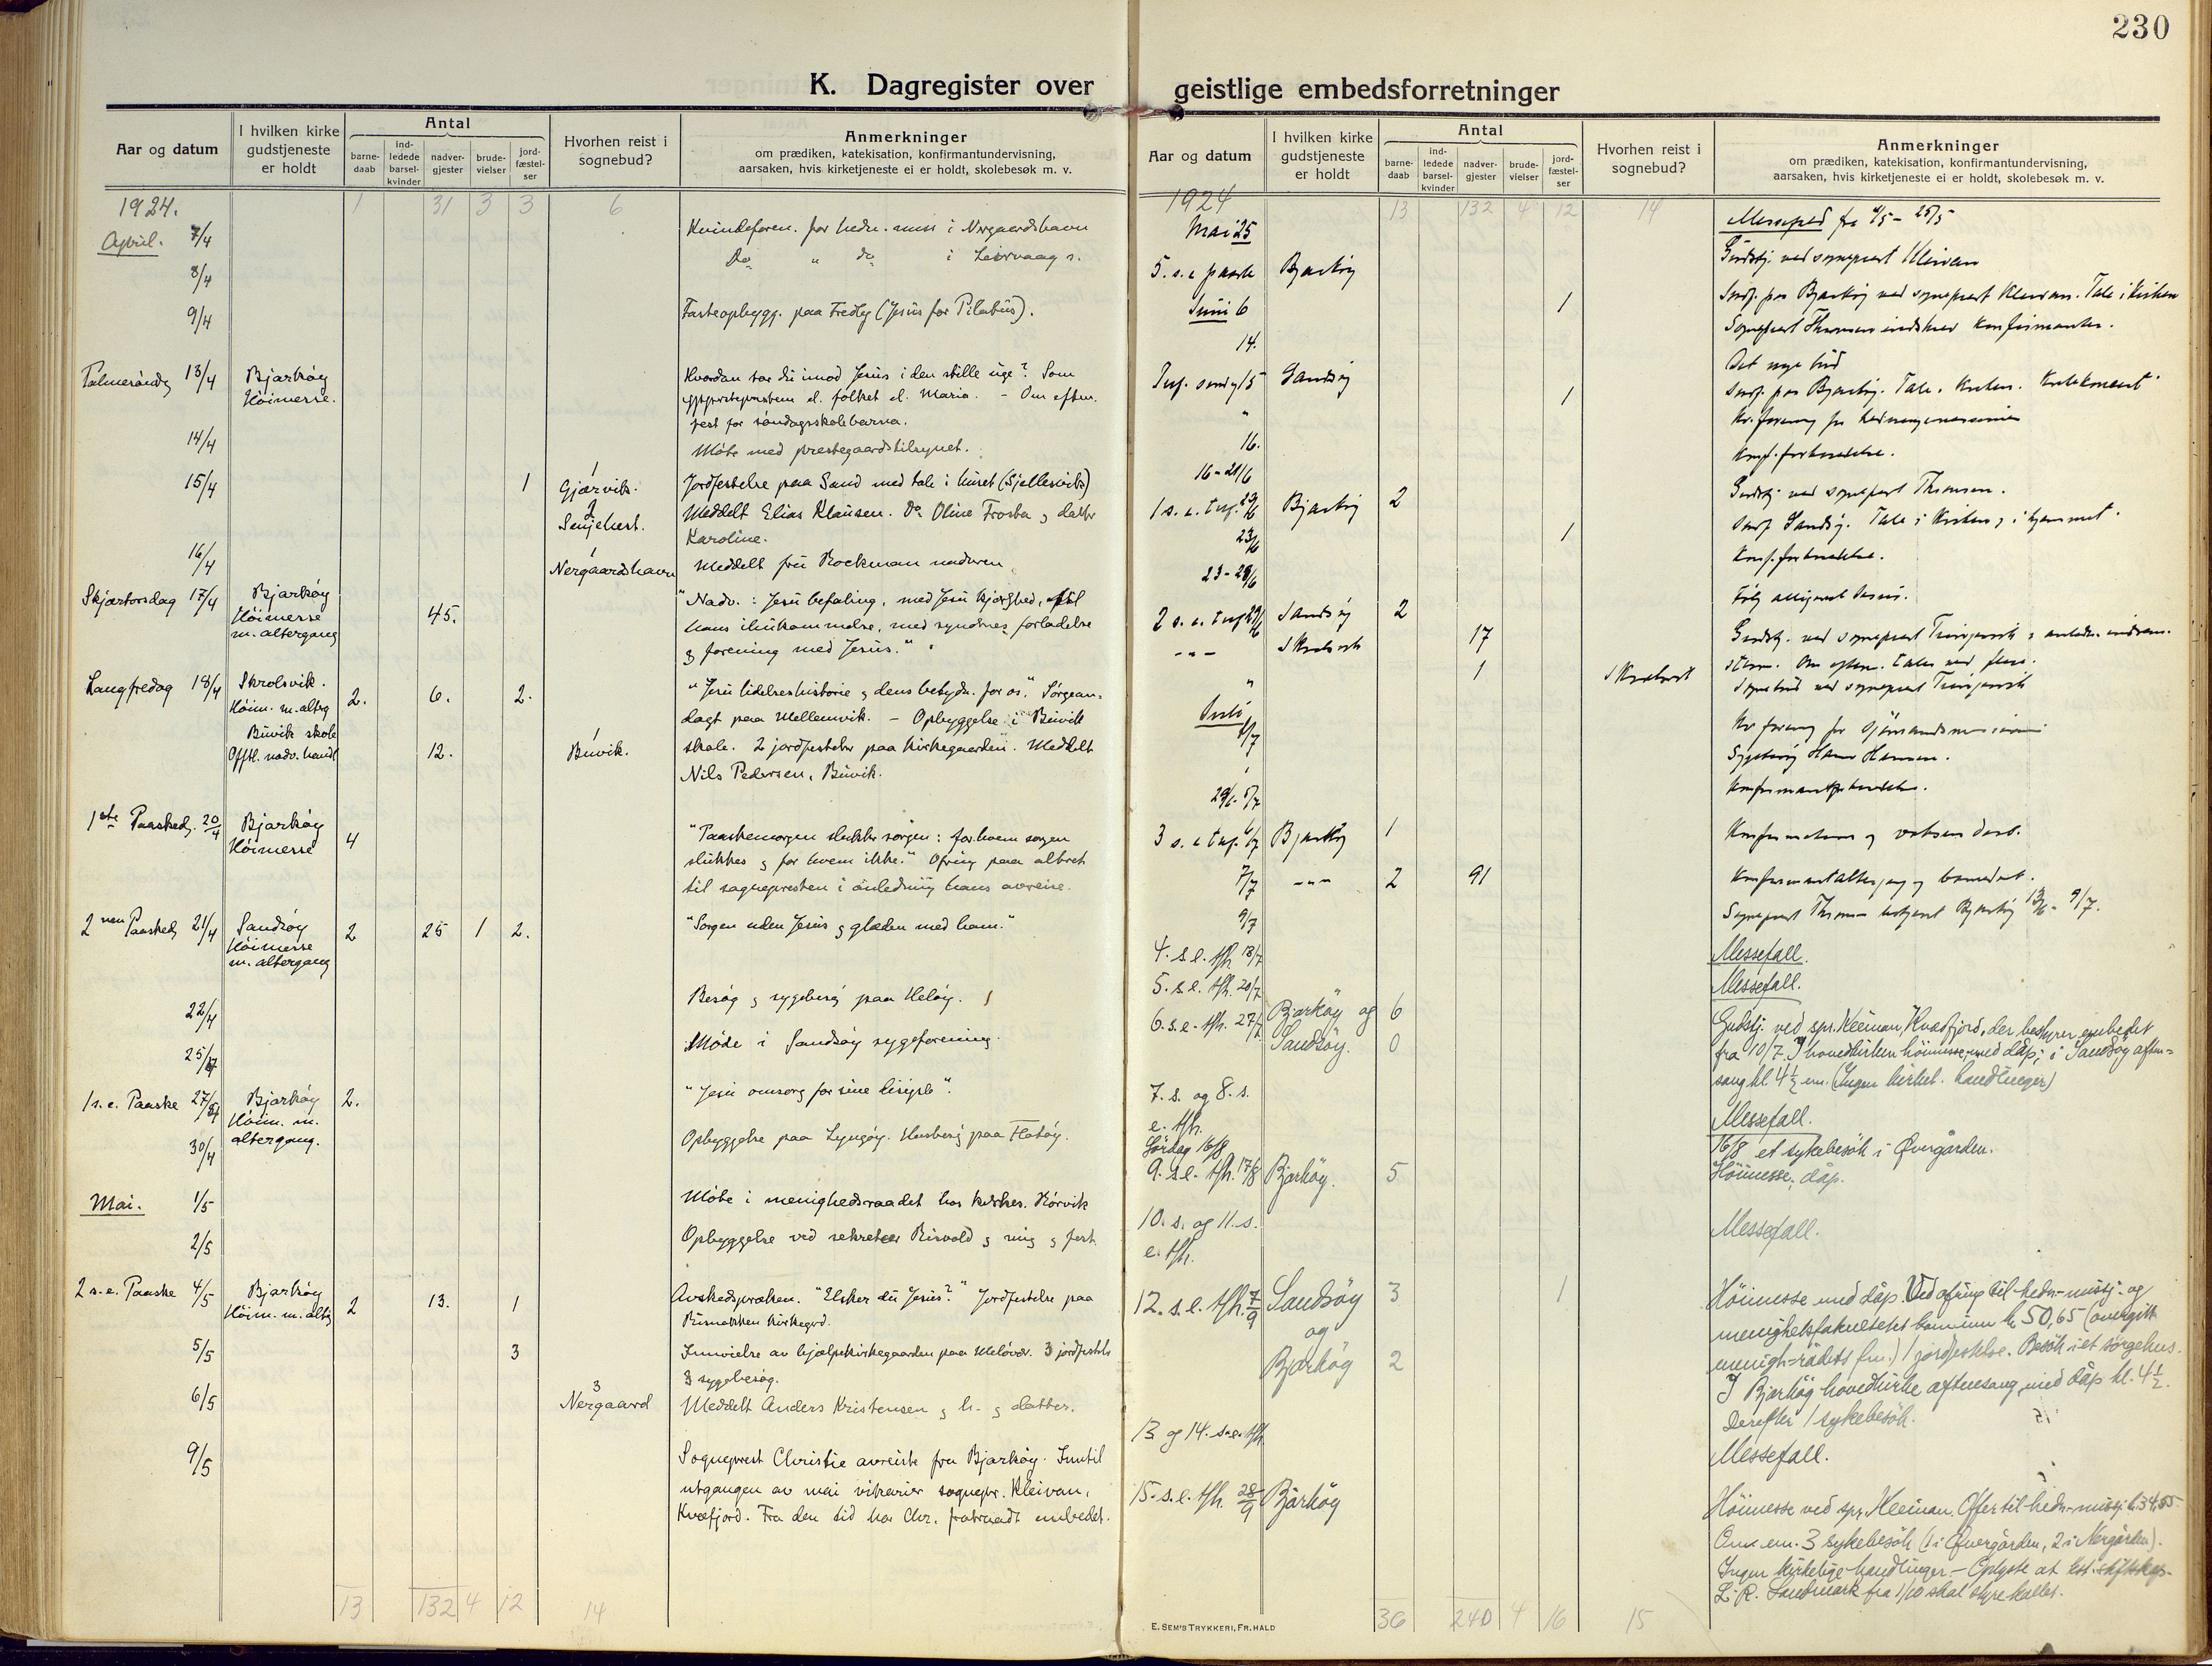 230
K. Dagregister over geistlige embedsforretninger
Aar og datum
I hvilken kirke
gudstjeneste
er holdt
Antal
barne-
daab
ind-
ledede
barsel-
kvinder
nadver-
gjester
brude-
vielser
jord-
fæstel-
ser
Hvorhen reist i
sognebud?
Anmerkninger
om prædiken, katekisation, konfirmantundervisning,
aarsaken, hvis kirketjeneste ei er holdt, skolebesøk m. v.
1924. 1 31 3 3 6
April. 7/4 Kvindeforen. for hedn. miss i Nergaardshavn
8/4 Do " do i Leirvaag s.
9/4 Fasteopbygg. paa Fredly (Jesus for Pilatus).
Palmesöndg 13/4 Bjarköy Hvordan tar du imod Jesus i den stille uge? Som
Höimesse. ypperstepresten el. folket el. Maria. - Om eftm.
fest for söndagsskolebarna.
14/4 Möte med prestegaardstilsynet.
15/4 1 1 Gjærvik. Jordfestelse paa Sand med tale i huset
2 Senjehest. Meddelt Elias Klausen. Do Oline Frosta g datter
Karoline.
16/4 1 Nergaardshavn Meddelt fru Rockman nadveren
Skjærtorsdag 17/4 Bjarköy "Nadv.: Jesu befaling, med Jesu kjærlghed, til
Höimesse 45. hans ihukommelse, med syndernes forladelse
m. altergang g forening med Jesus."
Langfredag 18/4 Skrolsvik. 2. 6. 2. "Jesu lidelseshistorie g dens betydn. for os." Sörgean-
Höim. m. altrg dagt paa Mellemvik. - Opbyggelse i Buvik
Buvik skole
Offtl. nadv. handl 12. 1 Buvik. skole. 2 jordfestelser paa kirkegaarden. Meddelt
Nils Pedersen, Buvik.
1ste Paasked. 20/4 Bjarköy 4 "Paaskemorgen slukker sorgen: for hvem sorgen
Höimesse slukkes g for hvem ikke." Ofring paa altret
til sognepresten i anledning hans avreise.
2nen Paasked 21/4 Sandsöy 2 25 1 2. "Sorgen uden Jesus g glæden med ham."
Höimesse
m. altergang
22/4 Besög g sygebesög paa Meløy.
25/4 Möde i Sandsöy sygeforening.
1 s. e. Paaske 27/4 Bjarköy 2. "Jesu omsorg for sine disiple".
Höim. m.
altergang.
30/4 Opbyggelse paa Lyngöy. Husbesög paa Flatöy.
Mai. 1/5 Möte i menighedsraadet hos kirkes. Rörvik
2/5 Opbyggelse ved sekretær Risvold g mig g fest.
2 s. e. Paaske 4/5 Bjarköy 2 13. 1 Avskedspræken. "Elsker du Jesus?" Jordfestelse paa
Höim. m. altg kirkegrd.
5/5 3 Innvielse av hjælpekirkegaarden paa Meløvær. 3 jordfestels
3 sygebesög.
6/5 3 Nergaard Meddelt Anders Kristensen g h. g datter.
9/5 Sogneprest Christie avreiste fra Bjarköy. Inntil
utgangen av mai vikarier sognepr. Kleivan,
Kvæfjord. Fra den tid har Chr. fratraadt embedet.
13 132 4 12 14
Aar og datum
I hvilken kirke
gudstjeneste
er holdt
Antal
barne-
daab
ind-
ledede
barsel-
kvinder
nadver-
gjester
brude-
vielser
jord-
fæstel-
ser
Hvorhen reist i
sognebud?
Anmerkninger
om prædiken, katekisation, konfirmantundervisning,
aarsaken, hvis kirketjeneste ei er holdt, skolebesøk m. v.
1924 13 132 4 12 14
Mai 25 Messefald fra 4/5 - 25/5
5. s. e. paaske Bjarköy Gudstj. ved sogneprest Kleivan
Juni 6 1 Jordf. paa Bjarköy ved sogneprest Kleivan. Tale i kirken
14. Sogneprest Thomsen indskrev konfirmanter.
Sandsöy Det nye bud
" 1 Jordf. paa Bjarköy. Tale i kirken.
16. Kv. forening for hedningemissionen
16-21/6 Konf. forberedelse.
1 s. e. tref. 22/6 Bjarköy 2 Gudstj. ved sogneprest Thomsen.
23/6 1 Jordf Sandsöy. Tale i kirken g i hjemmet.
23-28/6 Konf. forberedelse.
2 s. e. tref 29/6 Sandsöy 2 Følg alligevel Jesus.
-"- Skrolsvik 17 Gudstj. ved sogneprest
" 1 Skrolsvik Sognebud ved sogneprest
Juli 1/7 Kv forening for sjömandsmissionen
Sygebesög Hans Hansen.
29/6-5/7 Konfirmantforberedelse.
3 s. e. tref. 6/7 Bjarköy 1 Konfirmation og voksen daab.
7/7 -"- 2 91 Konfirmantaltergang og barnedaab.
9/7 Sogneprest Thomsen betjent Bjarköy 13/6 - 9/7.
4. s. e. tfh. 13/7 Messefall.
5. s. e. tfh. 20/7 Messefall.
6. s. e. tfh. 27/7 Bjarköy og 6 Gudstj. ved spr. Kleivan, Kvæfjord, der bestyrer embedet
Sandsöy. 0 fra 10/7. I hovedkirken höimesse med dåp; i Sandsöy aften-
sang kl 4½ em. (Ingen kirkel. handlinger)
7. s. og 8. s.
e. tfh. Messefall.
Lördag 16/8 16/8 et sykebesök i Øvergården.
9. s. e. tfh. 17/8 Bjarköy. 5 Höimesse; dåp.
10. s. og 11. s.
e. tfh. Messefall.
12. s. e. tfh. 7/9 Sandsöy 3 1 Höimesse med dåp. Ved ofring til hedn-missj. og
og menighetsfakultetet kom inn kr 50,65 (overgitt
menigh-rådets fm.) 1 jordfestelse. Besök i et sorgehus.
Bjarköy 2 I Bjarköy hovedkirke aftensang med dåp kl. 4½.
Derefter 1 sykebesök.
13 og 14. s. e. tfh. Messefall.
15. s. e. tfh. 28/9 Bjarköy Höimesse ved spr. Kleivan. Offer til hedn-missj. k. 34.55
em. 3 sykebesök (1 i Øvergården, 2 i Nergården).
Ingen kirkelige handlinger - Oplyste at
L. R. Sandmark fra 1/10 skal styre kallet.
36 240 4 16 15
E. SEM'S TRYKKERI, FR.HALD